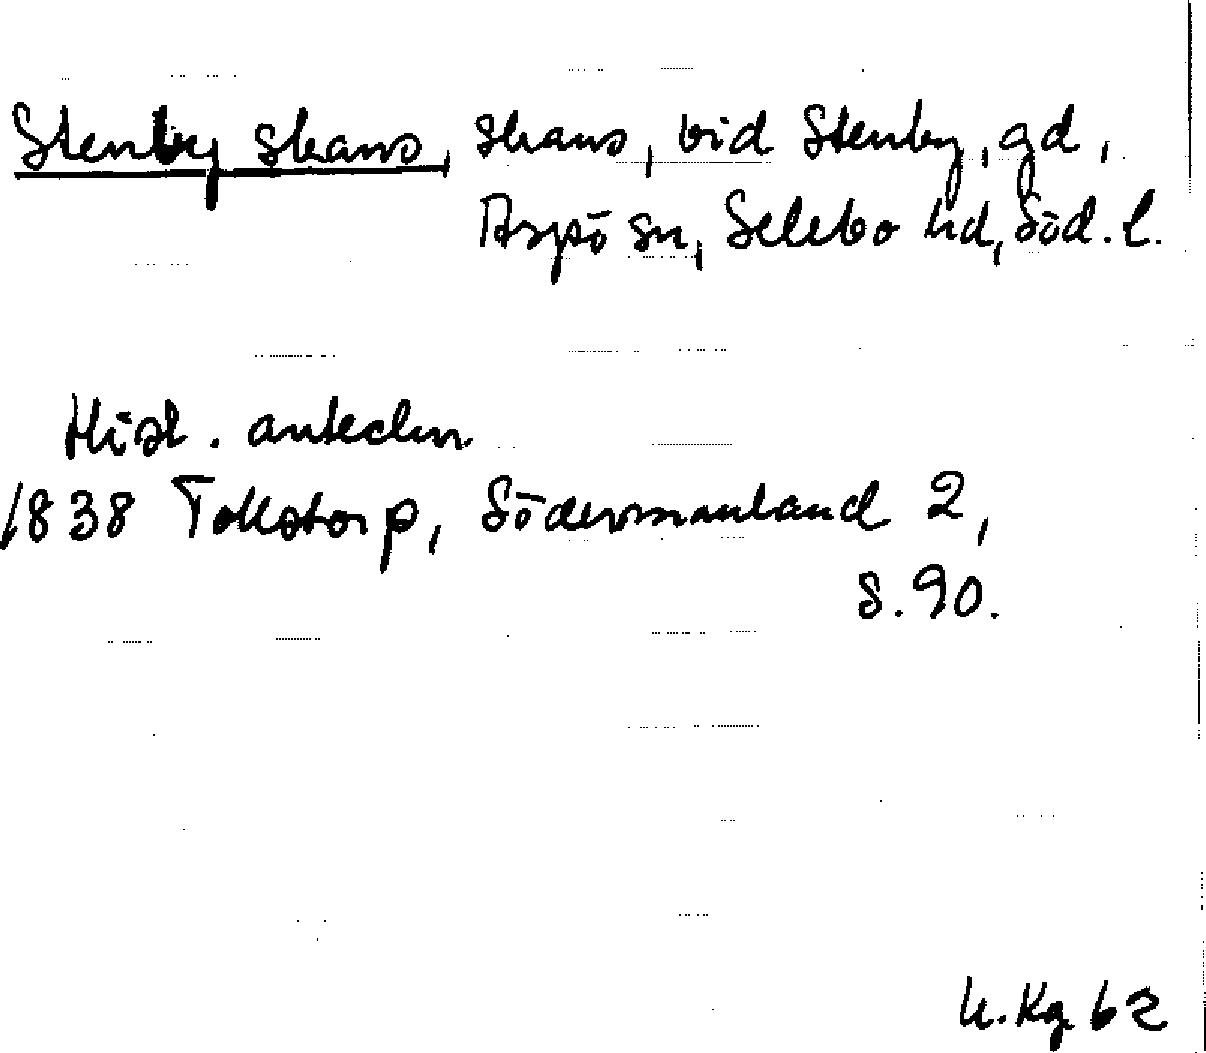 Stenby skans, skans, vid Stenby, gd,
Aspö sn, Selebo hd, Söd. l.
Hist. anteckn
1838 Tollstorp, Södermanland 2,
s. 90.
K. Kg 62